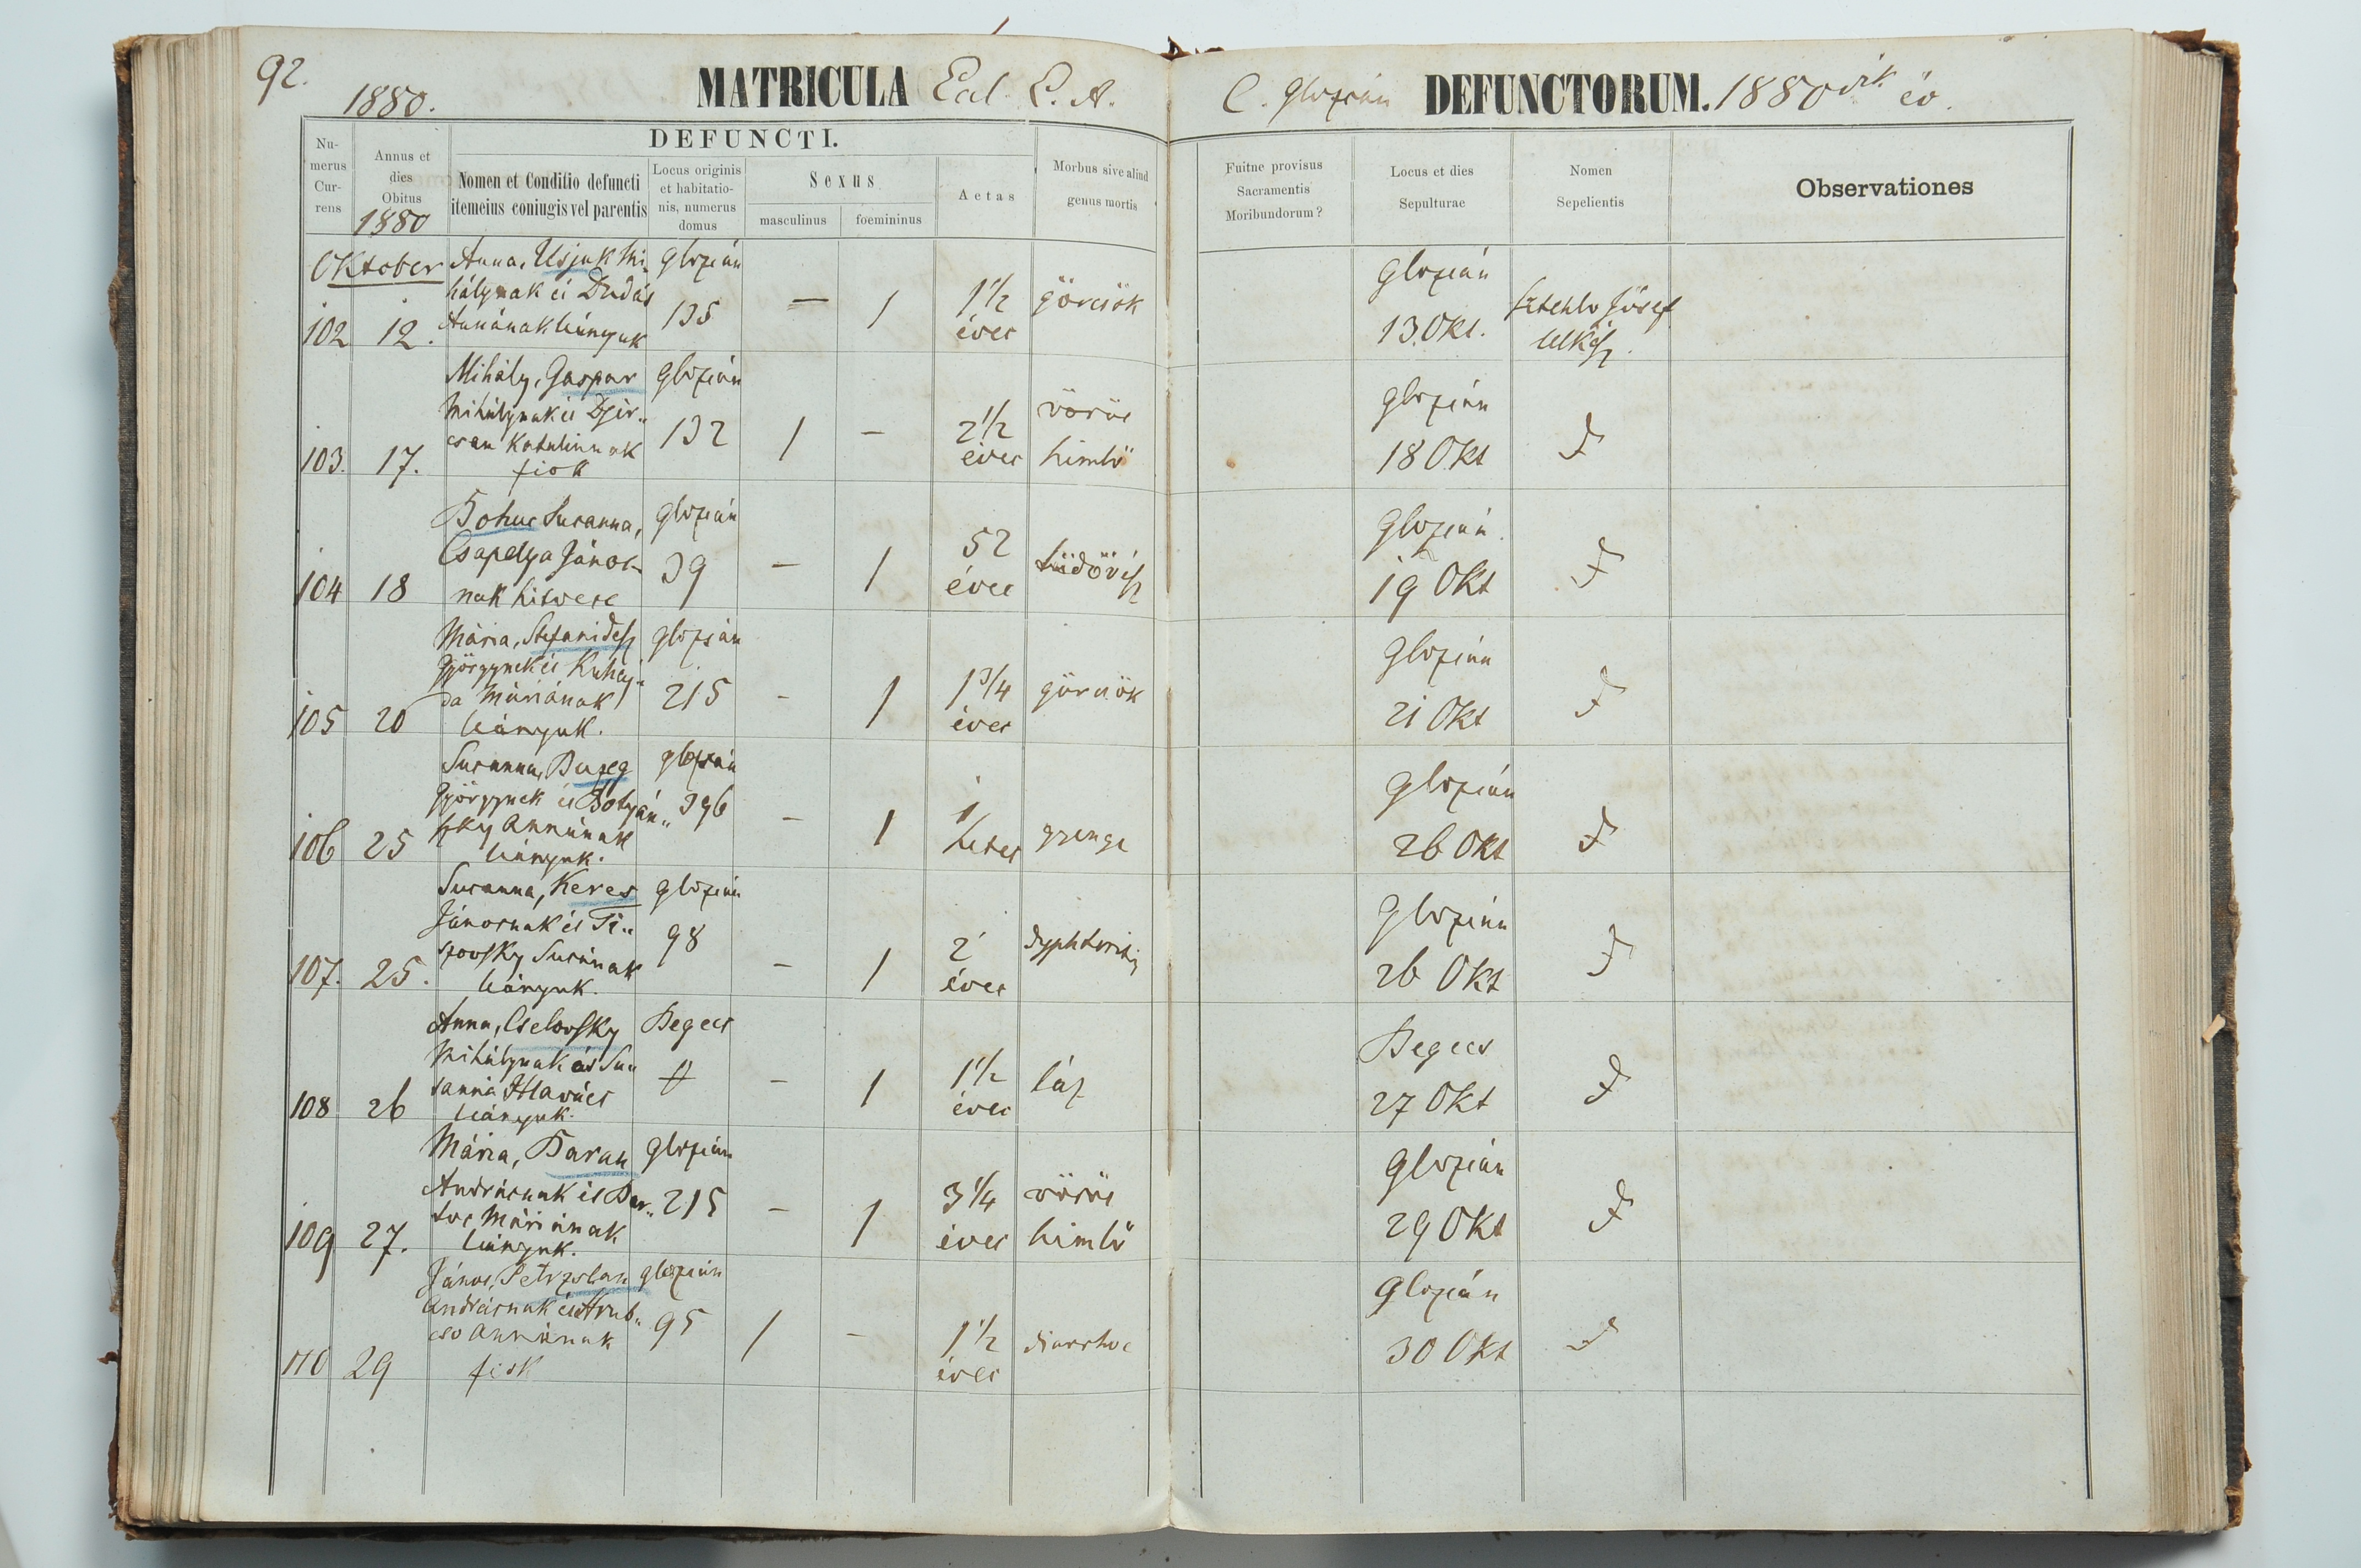 92.
1880.
MATRICULA Eccl. E. A.
C. Glozsán DEFUNCTORUM. 1880 dik év.
Numerus Currens
Annus et dies Obitus
1880
DEFUNCTI.
Nomen et Conditio defuncti
itemeius coniugis vel parentis
Locus originis et habitationis, numerus domus
Sexus
masculinus
foemininus
Aetas
Morbus sive aliud genus mortis
Fuitne provisus Sacramentis Moribundorum?
Locus et dies Sepulturae
Nomen Sepelientis
Observationes
Oktober
102 12.
Anna, Usjak Mi-
hálynak és Dudás
Annának leányuk
Glozsán
135
— 1
1½
éves
görcsök
Glozsán
13 Okt.
Sztehlo Jósef
lelkész.
103. 17.
Mihály, Gaspar
Mihálynak és Dyir-
csan Katalinnak
fiok
Glozsán
132
1 —
2½
éves
vörös
himlö
Glozsán
18 Okt
104 18
Bohus Susanna,
Csapelya János-
nak hitvese
Glozsán
39
— 1
52
éves
tüdövész
Glozsán
19 Okt
105 20
Mária, Stefanidesz
Györgynek és Kuhaj-
da Máriának
leányuk.
Glozsán
215
— 1
1¾
éves
görcsök
Glozsán
21 Okt
106 25
Susanna, Buzeg
Györgynek és Botyán-
szky Annának
leányuk.
Glozsán
396
— 1
1
hetes
gyenge
Glozsán
26 Okt
107. 25.
Susanna, Keres
Jánosnak és Ti-
szovszky Susának
leányuk.
Glozsán
98
— 1
2
éves
dyphteritis
Glozsán
26 Okt
108 26
Anna, Cselovszky
Mihálynak és Su-
sanna Hlavács
leányuk.
Begecs
— 1
1½
éves
láz
Begecs
27 Okt
109 27.
Mária, Baran
Andrásnak és Bar-
tos Máriának
leányuk.
Glozsán
215
— 1
3¼
éves
vörös
himlö
Glozsán
29 Okt
110 29
János, Petrzslan
Andrásnak és Hrub-
cso Annának
fiok
Glozsán
95
1 —
1½
éves
diarrhoe
Glozsán
30 Okt